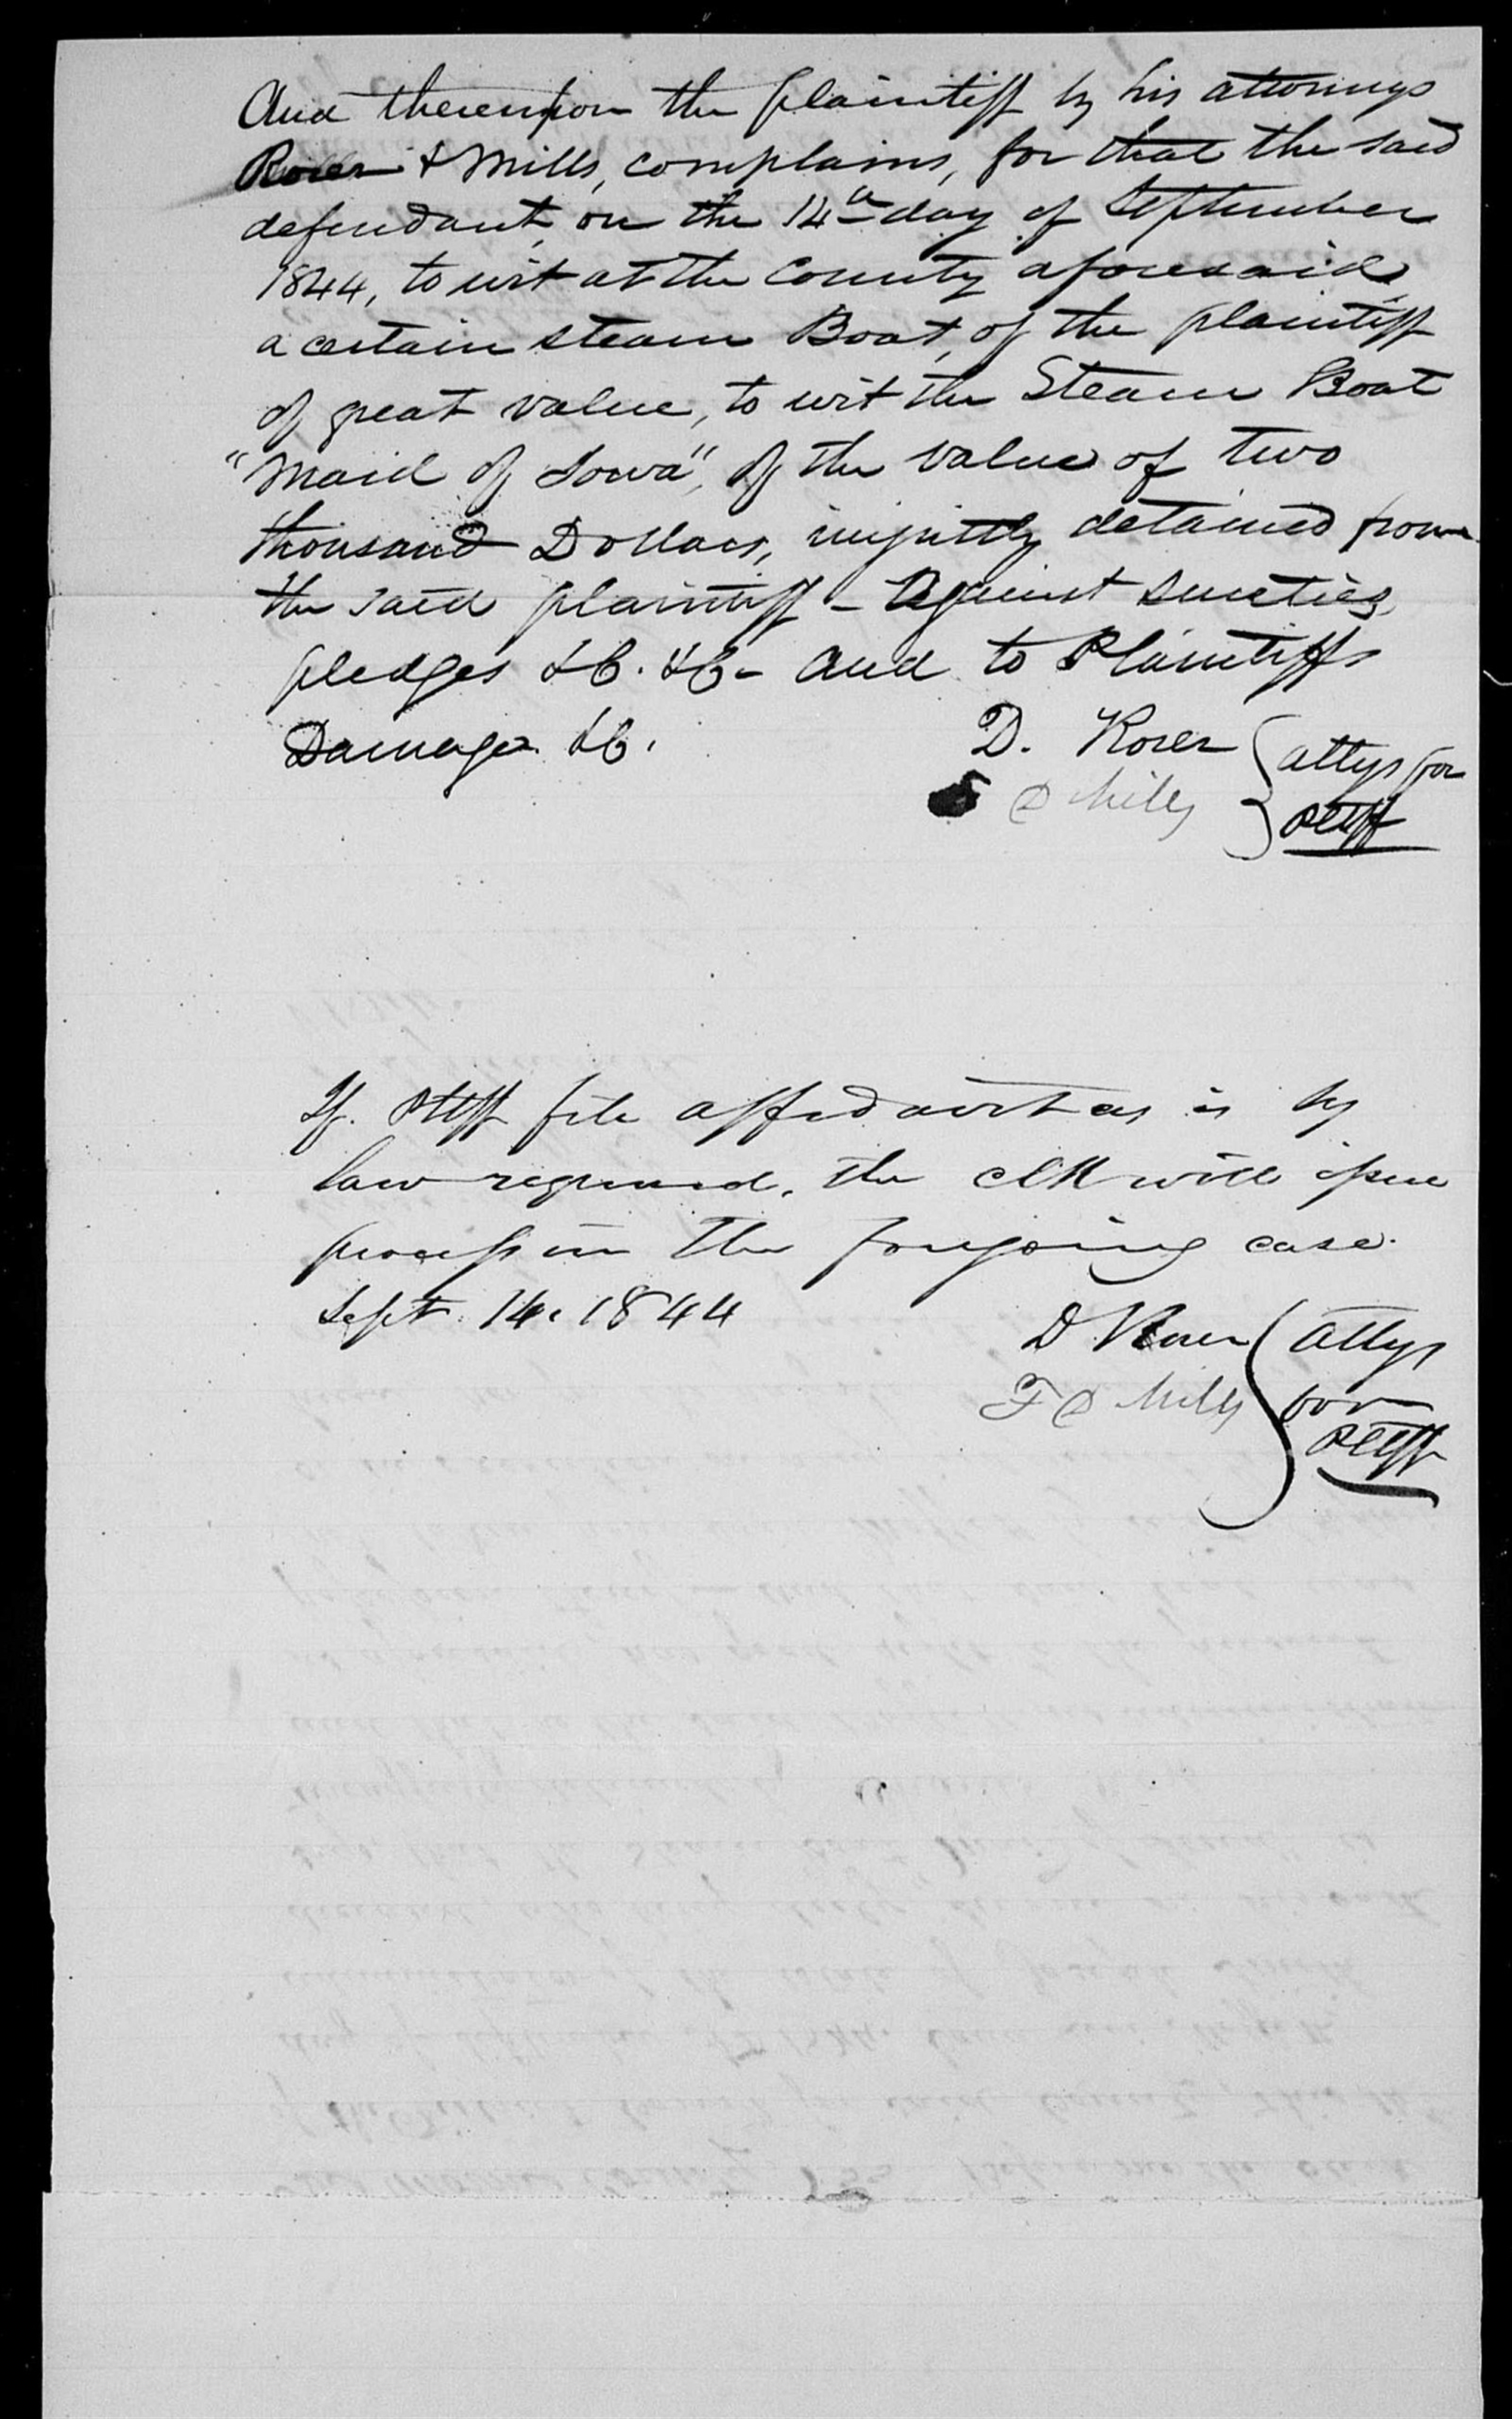 And thereupon the plaintiff by his attorneys
Rorer & Mills, complains, for that the said
defendant, on the 14th day of September
1844, to wit at the County aforesaid,
a certain steam Boat, of the plaintiff
of great value, to wit the Steam Boat
"Maid of Iowa", of the value of two
thousand Dollars, unjustly detained from
the said plaintiff - Against sureties,
pledges &C. &C - And to Plaintiffs
Damage &C.
D. Rorer } attys for
D Mills } Pltff
If Pltff file affidavit as is by
law required, the clk will issue
process in the foregoing case.
Sept. 14. 1844
D Rorer } Attys
F D Mills } for
Pltff